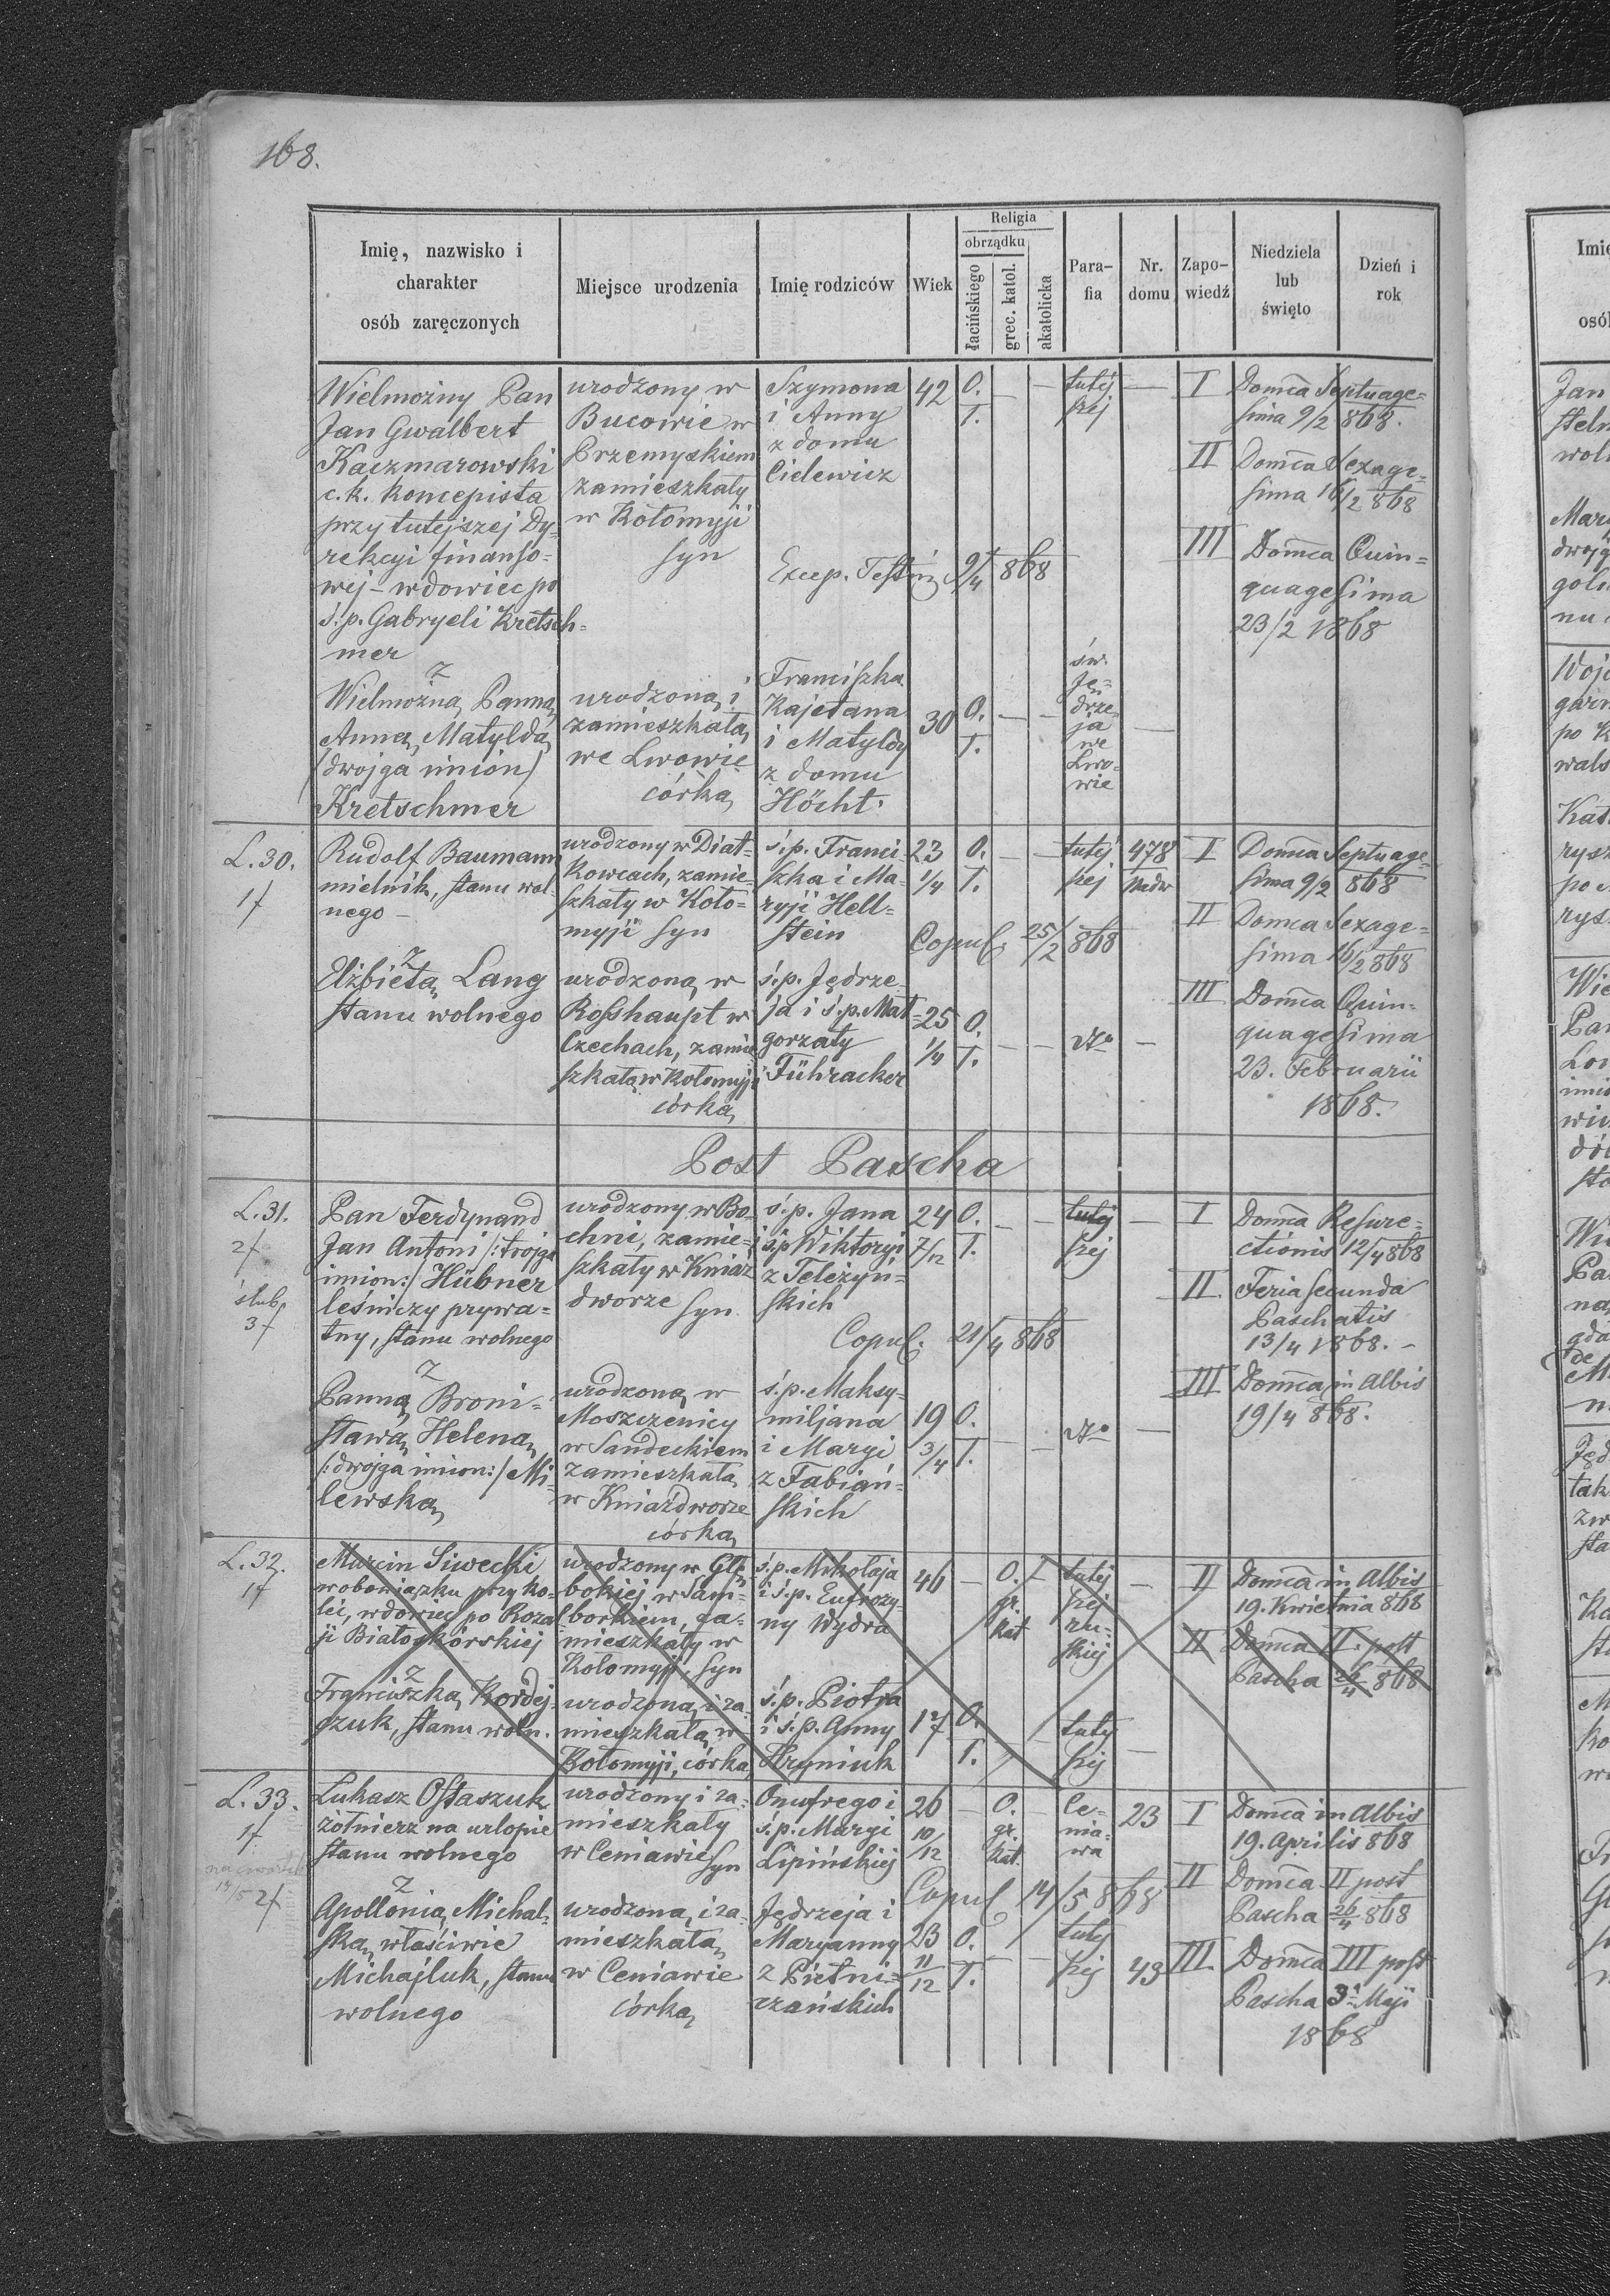 168.
Imię, nazwisko i
charakter
osób zaręczonych
Miejsce urodzenia
Imię rodziców
Wiek
Religia
obrządku
łacińskiego
grec. katol.
akatolicka
Para-
fia
Nr.
domu
Zapo-
wiedź
Niedziela
lub
święto
Dzień i
rok
Wielmożny Pan
Jan Gwalbert
Kaczmarowski
c.k. koncepista
przy tutejszej Dy-
rekcyi finanso-
wej - wdowiec po
ś.p. Gabryeli Kretsch-
mer
urodzony w
Bucowie w
Przemyskiem
zamieszkały
w Kołomyji
syn
Szymona
i Anny
z domu
Cielewicz
42
O.
ł.
tutej
szej
I Domca Septuage=
sima 9/2 868.
II Domca Sexage=
sima 16/2 868
III Domca Quin=
quagesima
23/2 1868
Excep. 9/4 868
z
Wielmożną Panną
Anną Matyldą
(dwojga imion)
Kretschmer
urodzoną i
zamieszkałą
we Lwowie
córką
Franciszka
Kajetana
i Matyldy
z domu
Höcht.
30
O.
ł.
św.
Ję=
drze=
ja
we
Lwo=
wie
L.30.
1f
Rudolf Baumann
mielnik, stanu wol-
nego -
urodzony w Diat=
kowcach, zamie=
szkały w Koło=
myji syn
ś.p. Franci=
szka i Ma=
ryji Hell=
stein
23
1/4
O.
ł.
tutej
szej
478
nadw
I Domca Septuage=
sima 9/2 868
II Domca Sexage=
sima 16/2 868
III Domca Quin=
quagesima
23. Februarii
1868.
Copul. 25/2 868
z
Elżbietą Lang
stanu wolnego
urodzoną w
Rosshaupt w
Czechach, zamie
szkałą w Kołomyji
córką
ś.p. Jędrze=
ja i ś.p. Mał=
gorzaty
Führacker
25
1/4
O.
ł.
Post Pascha
L.31.
2f
ślub
3f
Pan Ferdynand
Jan Antoni /:trojga
imion:/ Hübner
leśniczy prywa=
tny, stanu wolnego
urodzony w Bo-
chni, zamie=
szkały w Kniaź
dworze syn
ś.p. Jana
i ś.p. Wiktoryi
z Teleżyń=
skich
24
7/12
O.
ł.
tutej
szej
I Domca Resure=
ctionis 12/4 868
II. Feria secunda
Paschatis
13/4 1868. -
III Domca in Albis
19/4 868.
Copul. 21/4 868
z
Panną Broni=
sławą Heleną
/:dwojga imion:/ Mi=
lewską
urodzoną w
Moszczenicy
w Sandeckiem
zamieszkałą
w Kniaźdworze
córką
ś.p. Maksy=
miljana
i Maryi
z Fabiań=
skich
19
3/4
O.
ł.
L.32.
1f
Marcin Siwecki
w obowiązku przy ko=
lei, wdowiec po Rozal
ji Białogkórskiej
urodzony w Głę
bokiej w Sam=
borkiem, za=
mieszkały w
Kołomyji, syn
ś.p. Mikołaja
i ś.p. Eufrozy=
ny Wydra
46
O.
gr.
kat
tutej
szej
ru=
skiej
II Domca in Albis
19. Kwietnia 868
II Domca II. post
Pascha 26/4 868
z
Franciszką Kordej=
szuk, stanu woln.
urodzoną i za
mieszkałą w
Kołomyji, córką
ś.p. Piotra
i ś.p. Anny
Hryniuk
17
O.
ł.
tutej
szej
L.33.
1f
na czwartek
14/5 2f
Łukasz Ostaszuk
żołnierz na urlopie
stanu wolnego
urodzony i za=
mieszkały
w Ceniawie
syn
Onufrego i
ś.p. Maryi
Lipińskiej
26
10/12
O.
gr.
kat.
Ce=
nia=
wa
23
I Domca in Albis
19. Aprilis 868
II Domca II post
Pascha 26/4 868
III. Domca III post
Pascha 3. Maji
1868
Copul 14/5 868
z
Apollonią Michal=
ską właściwie
Michajluk, stanu
wolnego
urodzoną i za=
mieszkałą
w Ceniawie
córką
Jędrzeja i
Maryanny
z Pietni=
czańskich
23
11/12
O.
ł.
tutej
szej
43